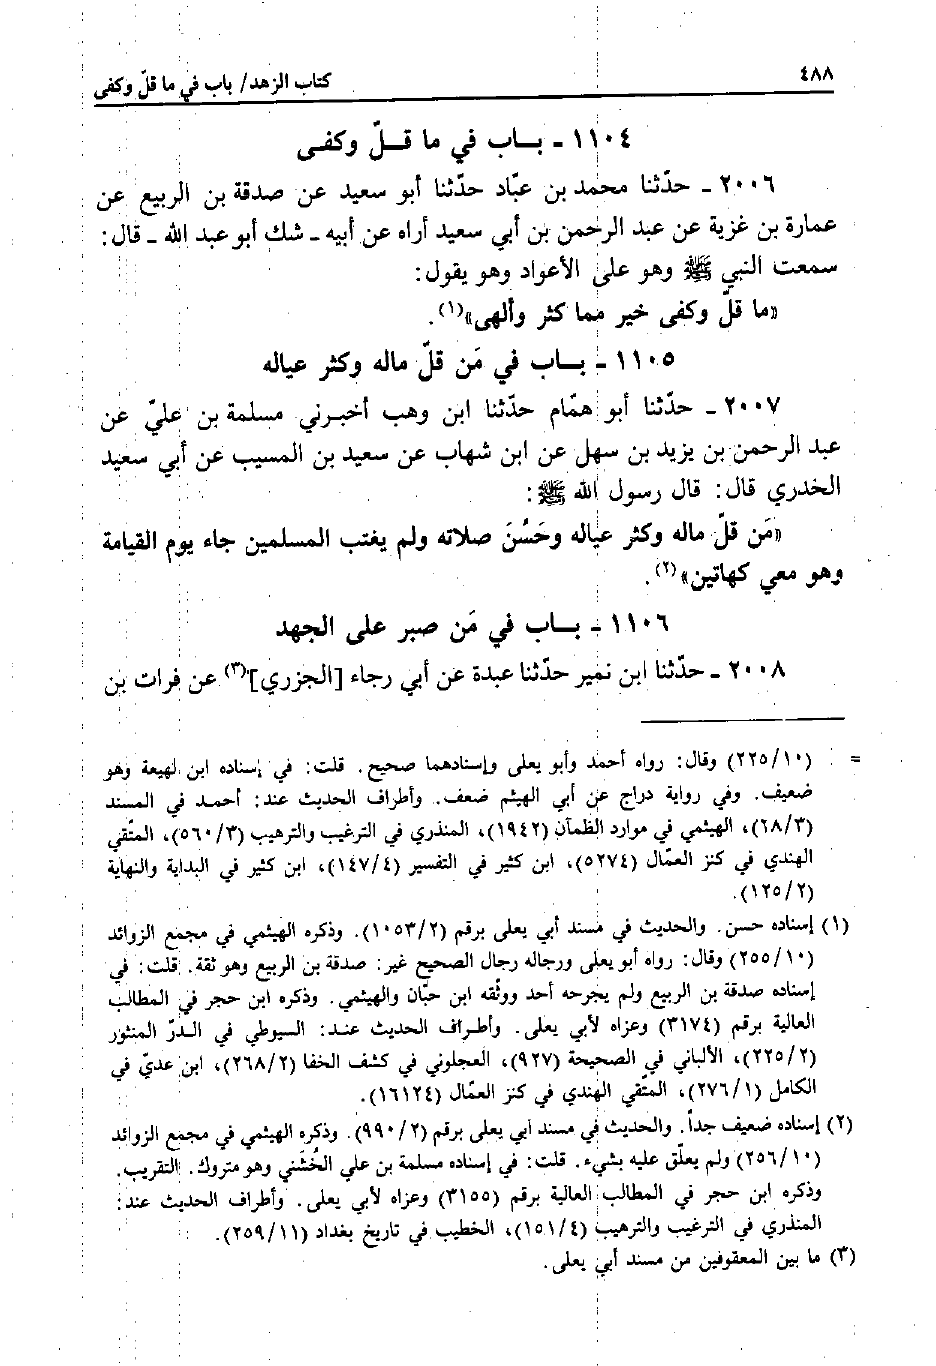 ٤٨٨
كتاب الزهد/ باب في ما قلّ وكفى
١١٠٤ - بـاب في ما قـلّ وكفـى
٢٠٠٦ - حدّثنا محمد بن عبّاد حدّثنا أبو سعيد عن صدقة بن الربيع عن
عمارة بن غزية عن عبد الرحمن بن أبي سعيد أراه عن أبيه - شك أبو عبد الله - قال:
سمعت النبي ﷺ وهو على الأعواد وهو يقول:
«ما قلّ وكفى خير مما كثر وألهى»(١).
١١٠٥ - بـاب في مَن قلّ ماله وكثر عياله
٢٠٠٧ - حدّثنا أبو همّام حدّثنا ابن وهب أخبرني مسلمة بن عليّ عن
عبد الرحمن بن يزيد بن سهل عن ابن شهاب عن سعيد بن المسيب عن أبي سعيد
الخدري قال: قال رسول الله ﷺ:
«مَن قلّ ماله وكثر عياله وحَسُنَ صلاته ولم يغتب المسلمين جاء يوم القيامة
وهو معي كهاتين»(٢).
١١٠٦ - بـاب في مَن صبر على الجهد
٢٠٠٨ - حدّثنا ابن نمير حدّثنا عبدة عن أبي رجاء [الجزري](٣) عن فرات بن
= (٢٢٥/١٠) وقال: رواه أحمد وأبو يعلى وإسنادهما صحيح. قلت: في إسناده ابن لهيعة وهو
ضعيف. وفي رواية دراج عن أبي الهيثم ضعف. وأطراف الحديث عند: أحمد في المسند
(٦٨/٣)، الهيثمي في موارد الظمآن (١٩٤٢)، المنذري في الترغيب والترهيب (٥٦٠/٣)، المتّقي
الهندي في كنز العمّال (٥٢٧٤)، ابن كثير في التفسير (١٤٧/٤)، ابن كثير في البداية والنهاية
(١٢٥/٢).
(١) إسناده حسن. والحديث في مسند أبي يعلى برقم (١٠٥٣/٢). وذكره الهيثمي في مجمع الزوائد
(٢٥٥/١٠) وقال: رواه أبو يعلى ورجاله رجال الصحيح غير: صدقة بن الربيع وهو ثقة. قلت: في
إسناده صدقة بن الربيع ولم يجرحه أحد ووثّقه ابن حبّان والهيثمي. وذكره ابن حجر في المطالب
العالية برقم (٣١٧٤) وعزاه لأبي يعلى. وأطراف الحديث عند: السيوطي في الدرّ المنثور
(٢٢٥/٢)، الألباني في الصحيحة (٩٢٧)، العجلوني في كشف الخفا (٢٦٨/٢)، ابن عديّ في
الكامل (٢٧٦/١)، المتّقي الهندي في كنز العمّال (١٦١٢٤).
(٢) إسناده ضعيف جداً. والحديث في مسند أبي يعلى برقم (٩٩٠/٢). وذكره الهيثمي في مجمع الزوائد
(٢٥٦/١٠) ولم يعلّق عليه بشيء. قلت: في إسناده مسلمة بن علي الخُشَني وهو متروك. التقريب.
وذكره ابن حجر في المطالب العالية برقم (٣١٥٥) وعزاه لأبي يعلى. وأطراف الحديث عند:
المنذري في الترغيب والترهيب (١٥١/٤)، الخطيب في تاريخ بغداد (٢٥٩/١١).
(٣) ما بين المعقوفين من مسند أبي يعلى.